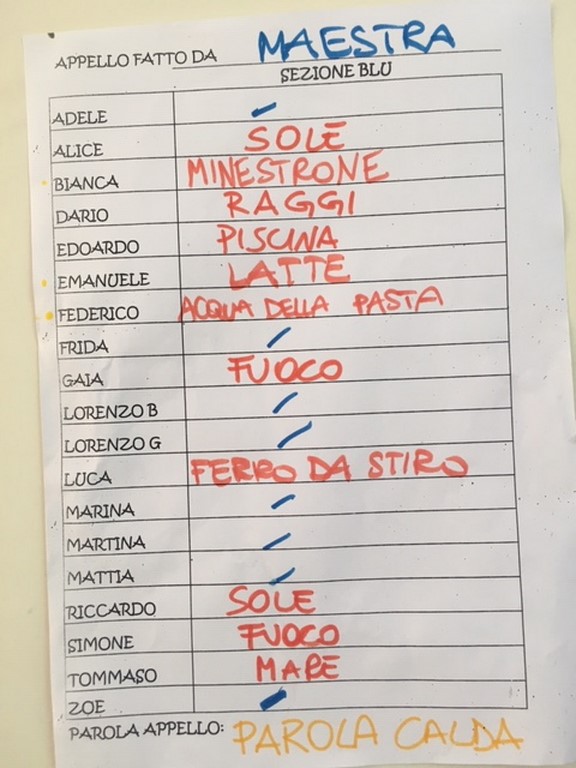 APPELLO FATTO DA MAESTRA
SEZIONE BLU
ADELE
ALICE SOLE
BIANCA MINESTRONE
DARIO RAGGI
EDOARDO PISCINA
EMANUELE LATTE
FEDERICO ACQUA DELLA PASTA
FRIDA
GAIA FUOCO
LORENZO B
LORENZO G
LUCA FERRO DA STIRO
MARINA
MARTINA
MATTIA
RICCARDO SOLE
SIMONE FUOCO
TOMMASO MARE
ZOE
PAROLA APPELLO: PAROLA CALDA